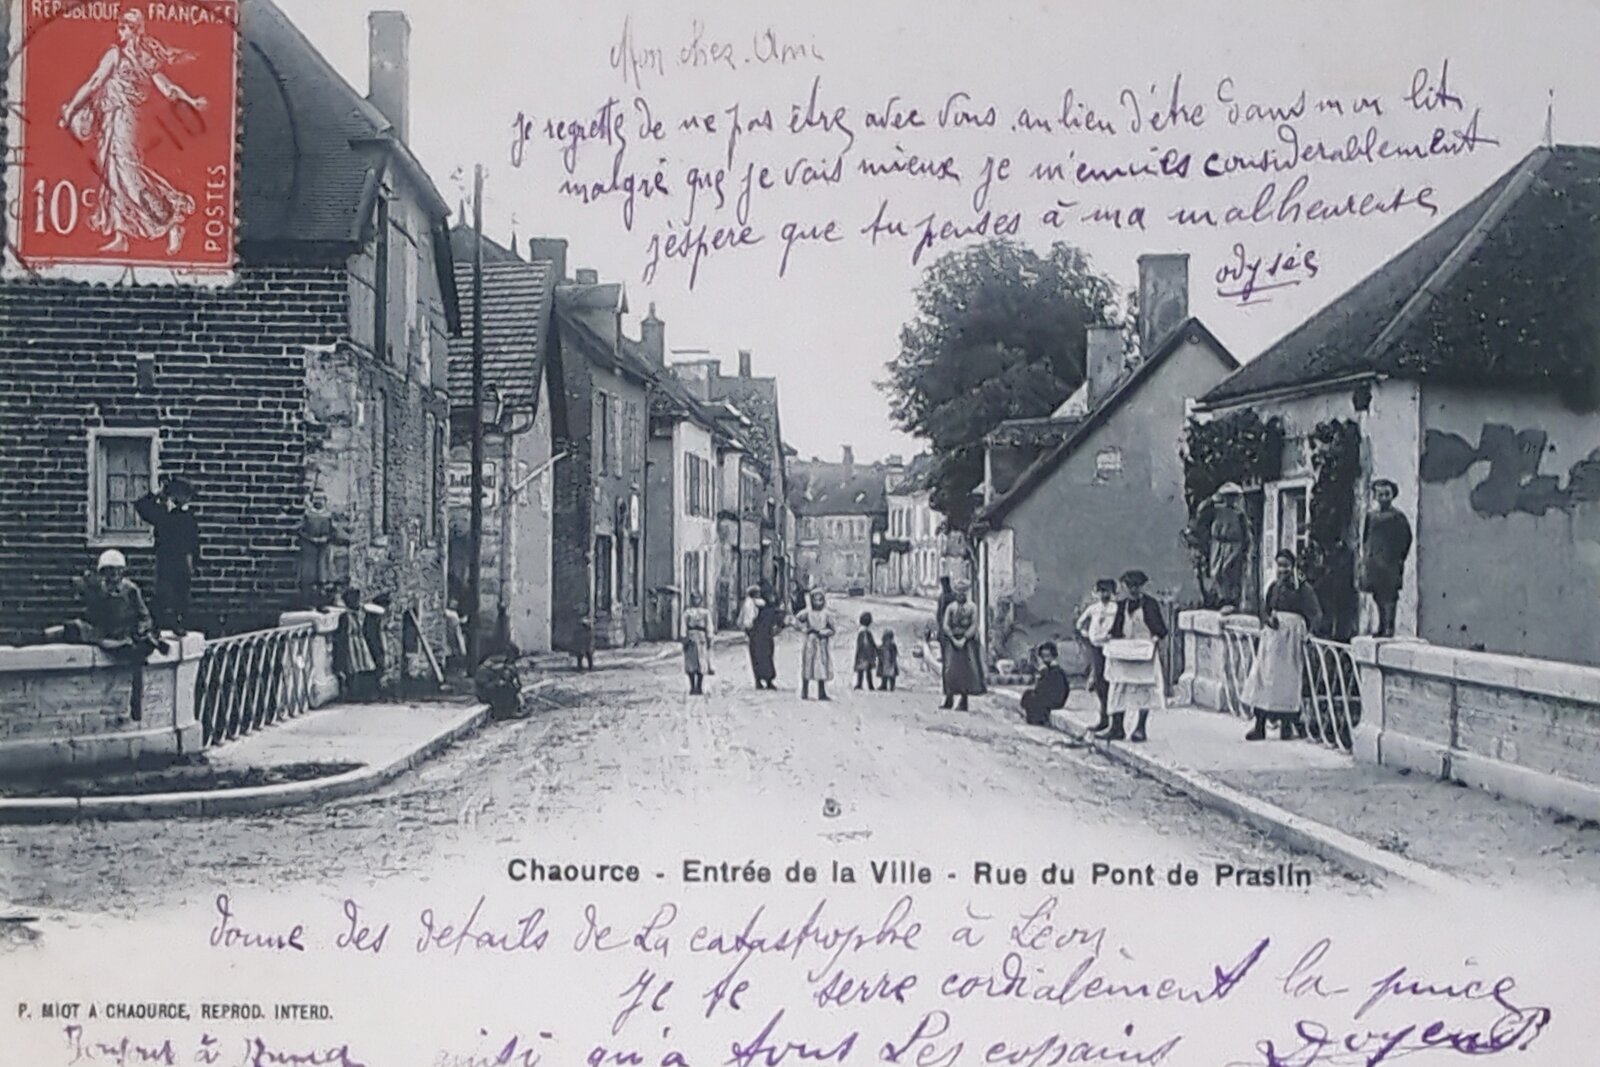 RÉPUBLIQUE FRANÇAISE
10c
POSTES
Mon cher Ami
je regrette de ne pas être avec vous au lieu d'être dans mon lit
malgré que je vais mieux je m'ennuies considerablement
j'éspere que tu penses à ma malheureuse
odysée
Chaource - Entrée de la Ville - Rue du Pont de Praslin
donne des details de La catastrophe à Léon.
je te serre cordialement la pince
P. MIOT A CHAOURCE, REPROD. INTERD.
à ainsi qu'à tous Les copains Doyen